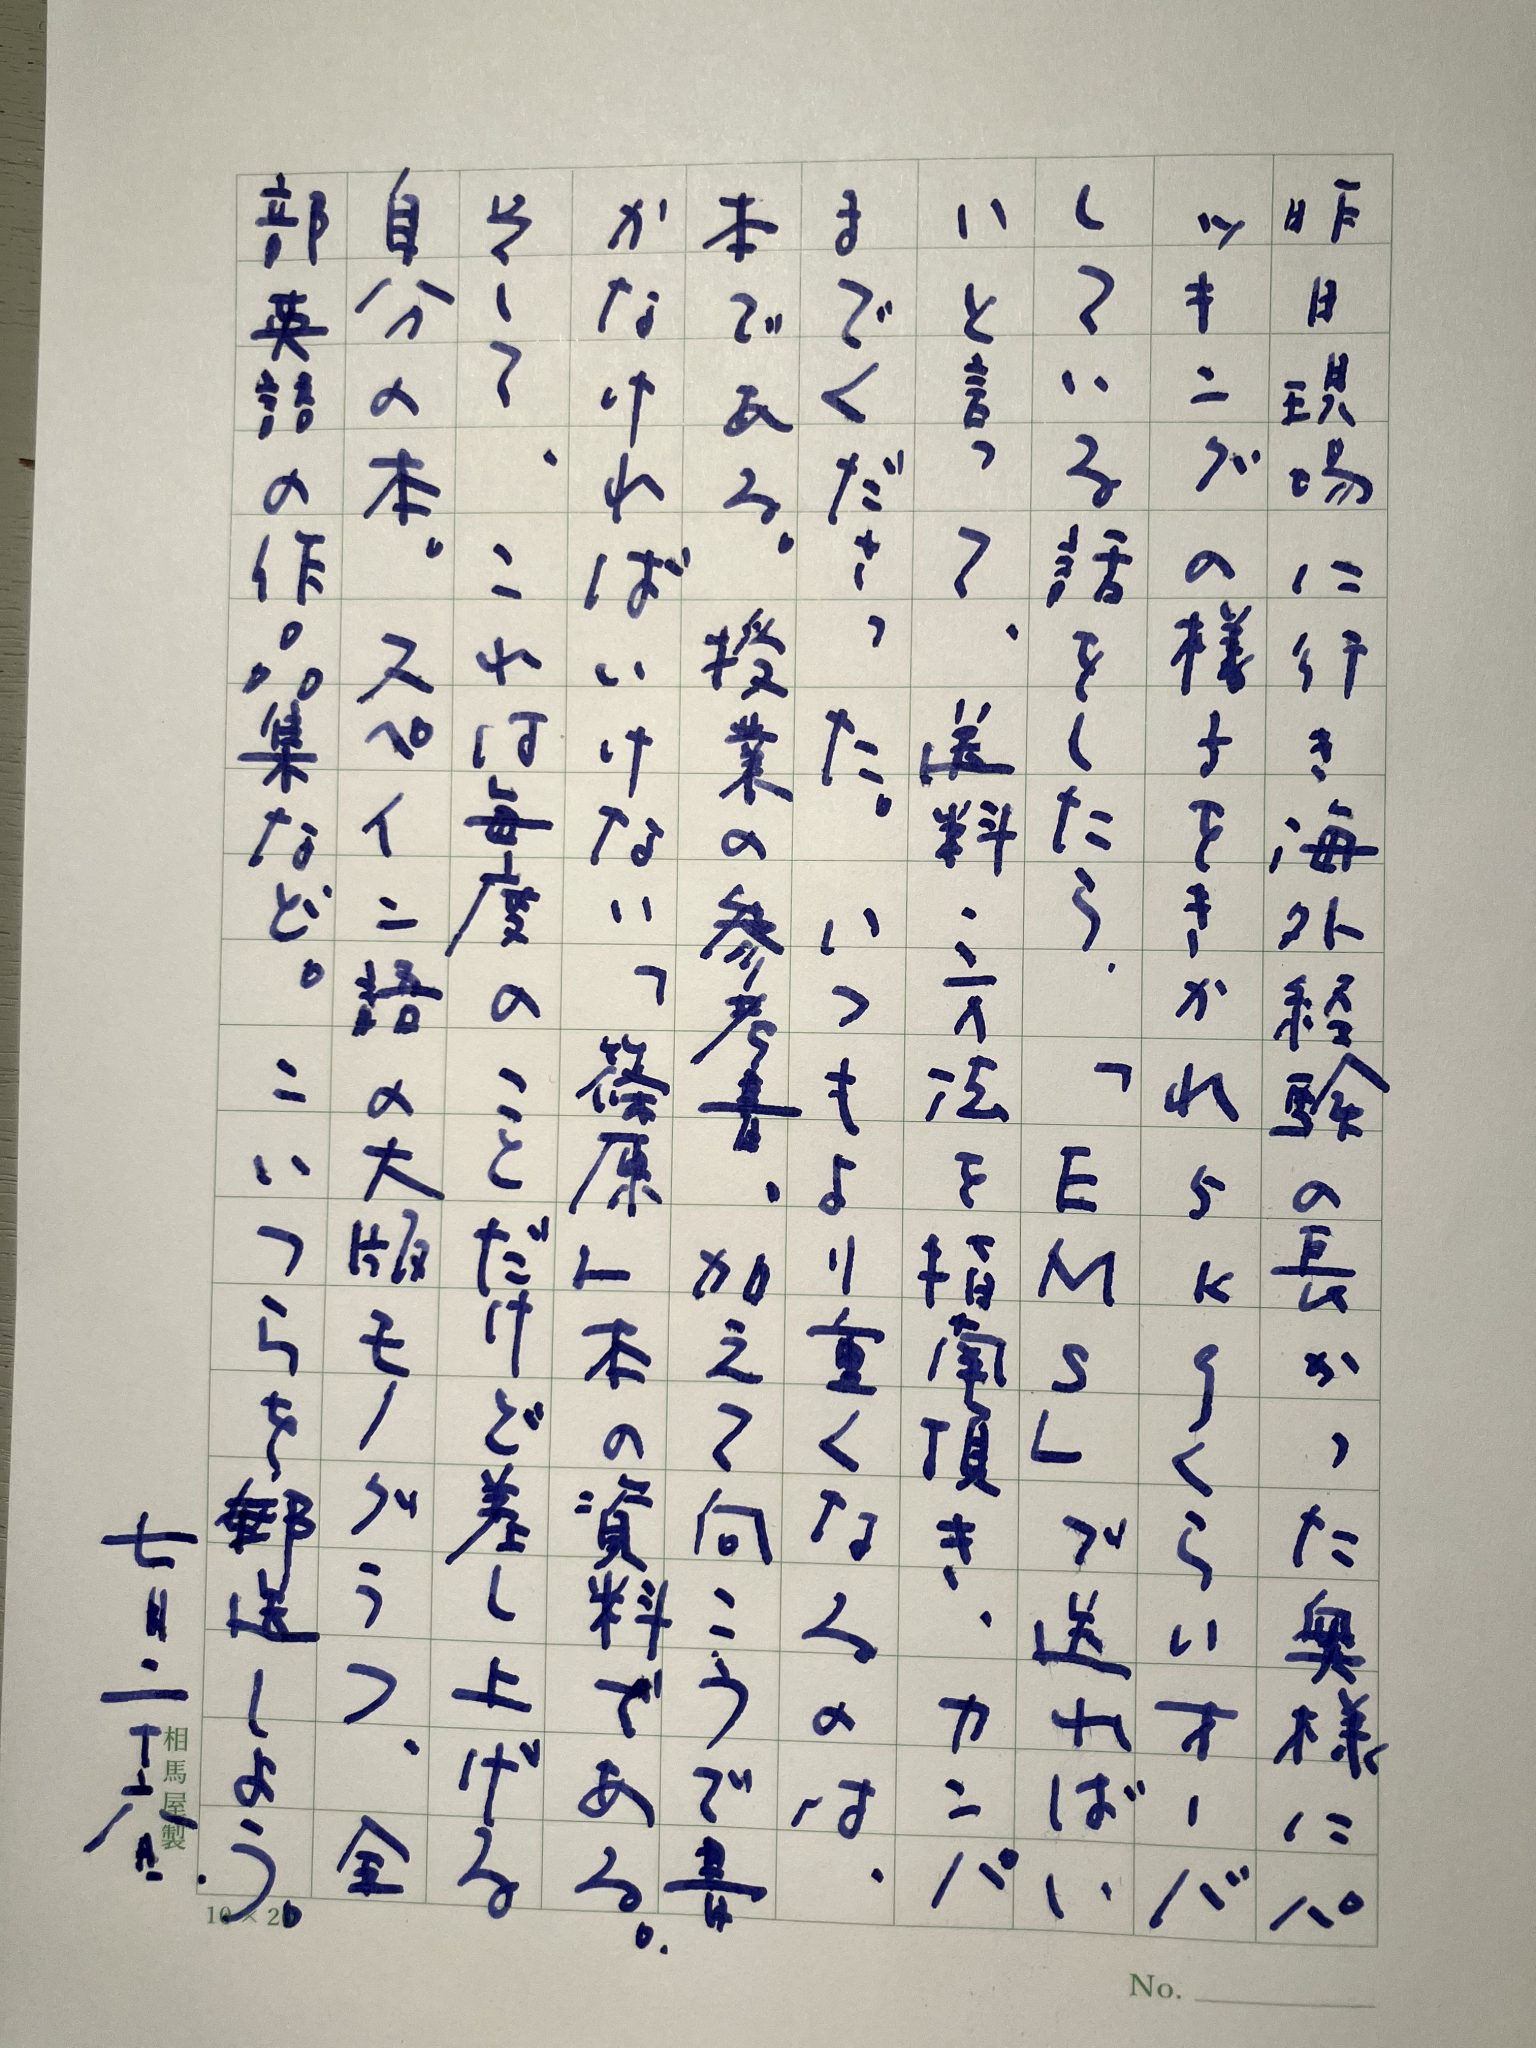 昨日現場に行き海外経験の長かった奥様にパ
ッキングの様子をきかれ5Kgくらいオーバ
している話をしたら、「EMS」で送ればい
いと言って、送料、方法を指南頂き、カンパ
までくださった。いつもより重くなるのは、
本である。授業の参考書、加えて向こうで書
かなければいけない「篠原」本の資料である。
そして、これは毎度のことだけど差し上げる
自分の本。スペイン語の大版モノグラフ、全
部英語の作品集など。こいつらを郵送しよう。
七月
相馬屋製
10×20
No.